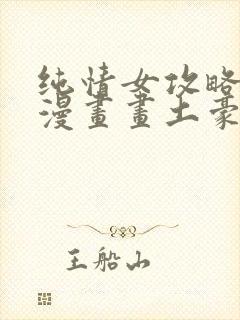 纯情女攻略
漫畫畫土豪
王船山